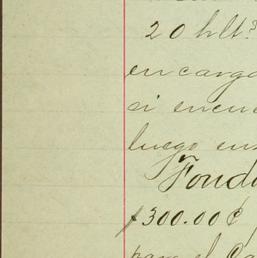 20 hlt?
encarga
si encu
luego en
Fond
$300.00
para el Ca